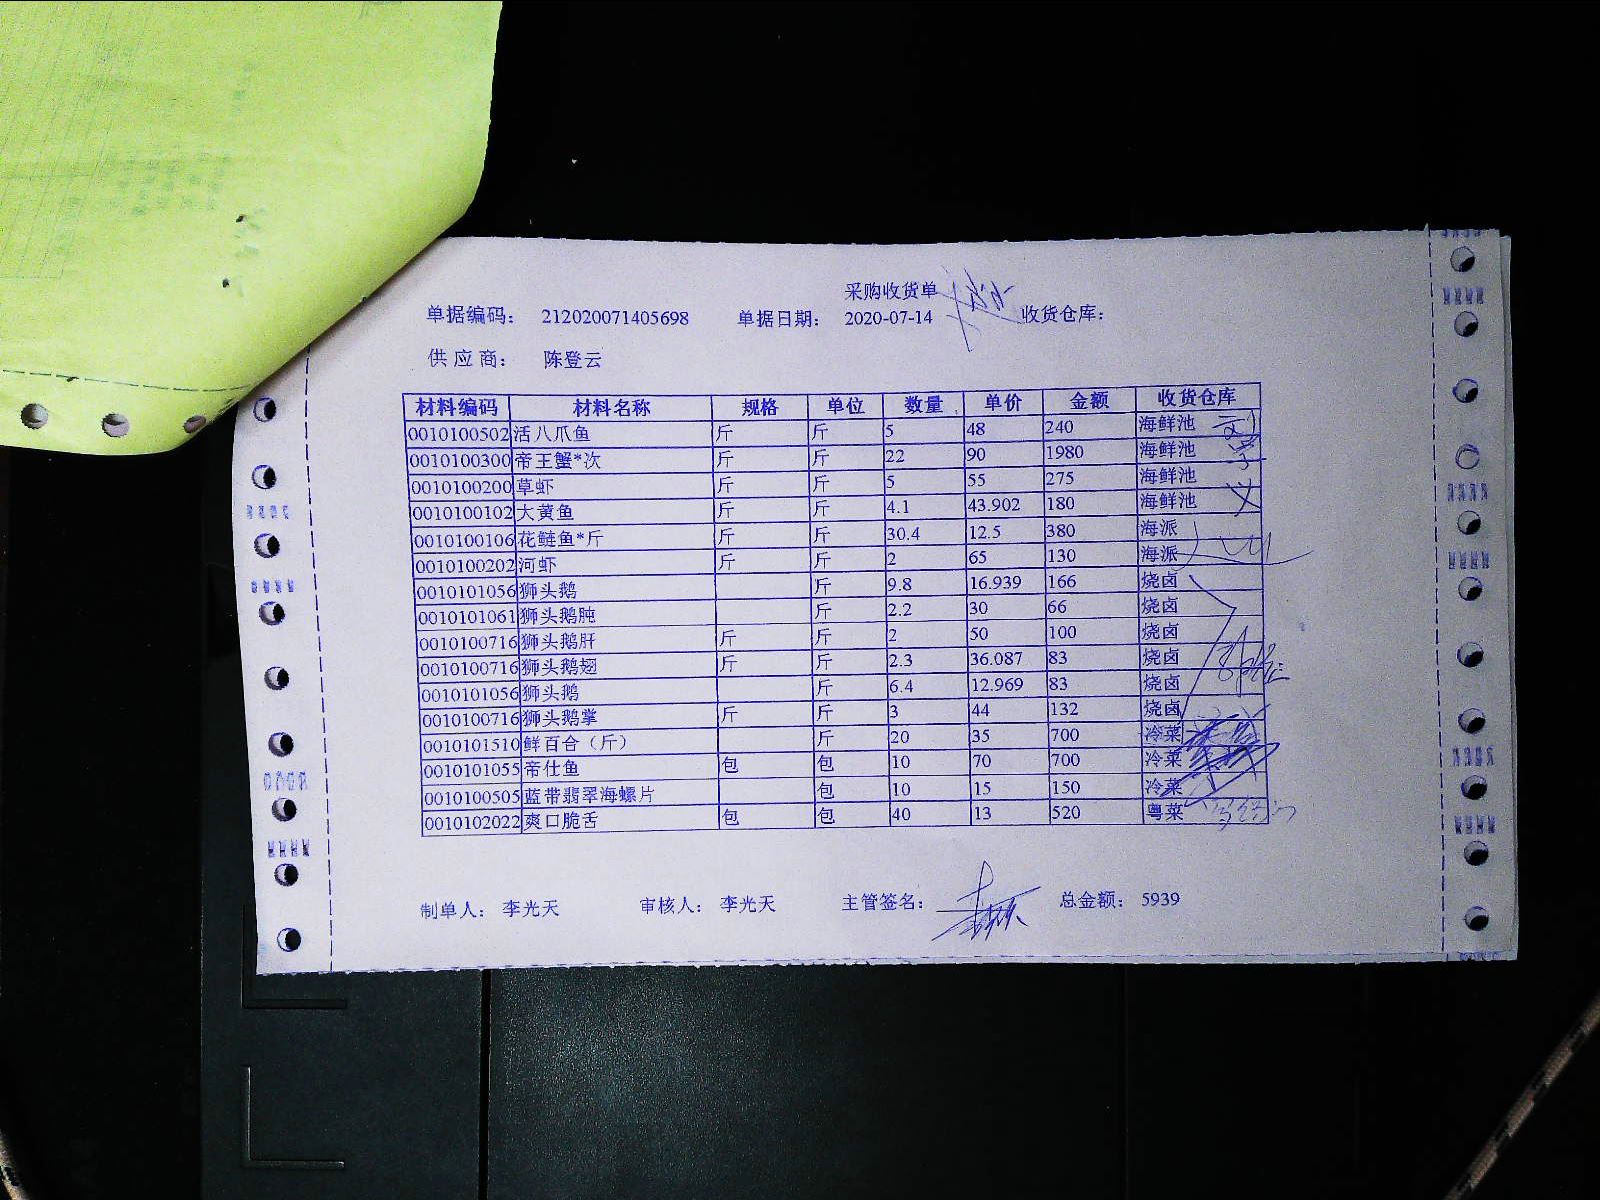 采购收货单
单据编码： 212020071405698 单据日期： 2020-07-14 收货仓库：
供应商： 陈登云
材料编码 材料名称 规格 单位 数量 单价 金额 收货仓库
0010100502 活八爪鱼 斤 斤 5 48 240 海鲜池
0010100300 帝王蟹*次 斤 斤 22 90 1980 海鲜池
0010100200 草虾 斤 斤 5 55 275 海鲜池
0010100102 大黄鱼 斤 斤 4.1 43.902 180 海鲜池
0010100106 花鲢鱼*斤 斤 斤 30.4 12.5 380 海派
0010100202 河虾 斤 斤 2 65 130 海派
0010101056 狮头鹅 斤 9.8 16.939 166 烧卤
0010101061 狮头鹅肫 斤 2.2 30 66 烧卤
0010100716 狮头鹅肝 斤 斤 2 50 100 烧卤
0010100716 狮头鹅翅 斤 斤 2.3 36.087 83 烧卤
0010101056 狮头鹅 斤 6.4 12.969 83 烧卤
0010100716 狮头鹅掌 斤 斤 3 44 132 烧卤
0010101510 鲜百合（斤） 斤 20 35 700 冷菜
0010101055 帝仕鱼 包 包 10 70 700 冷菜
0010100505 蓝带翡翠海螺片 包 10 15 150 冷菜
0010102022 爽口脆舌 包 包 40 13 520 粤菜
制单人： 李光天 审核人： 李光天 主管签名： 总金额： 5939